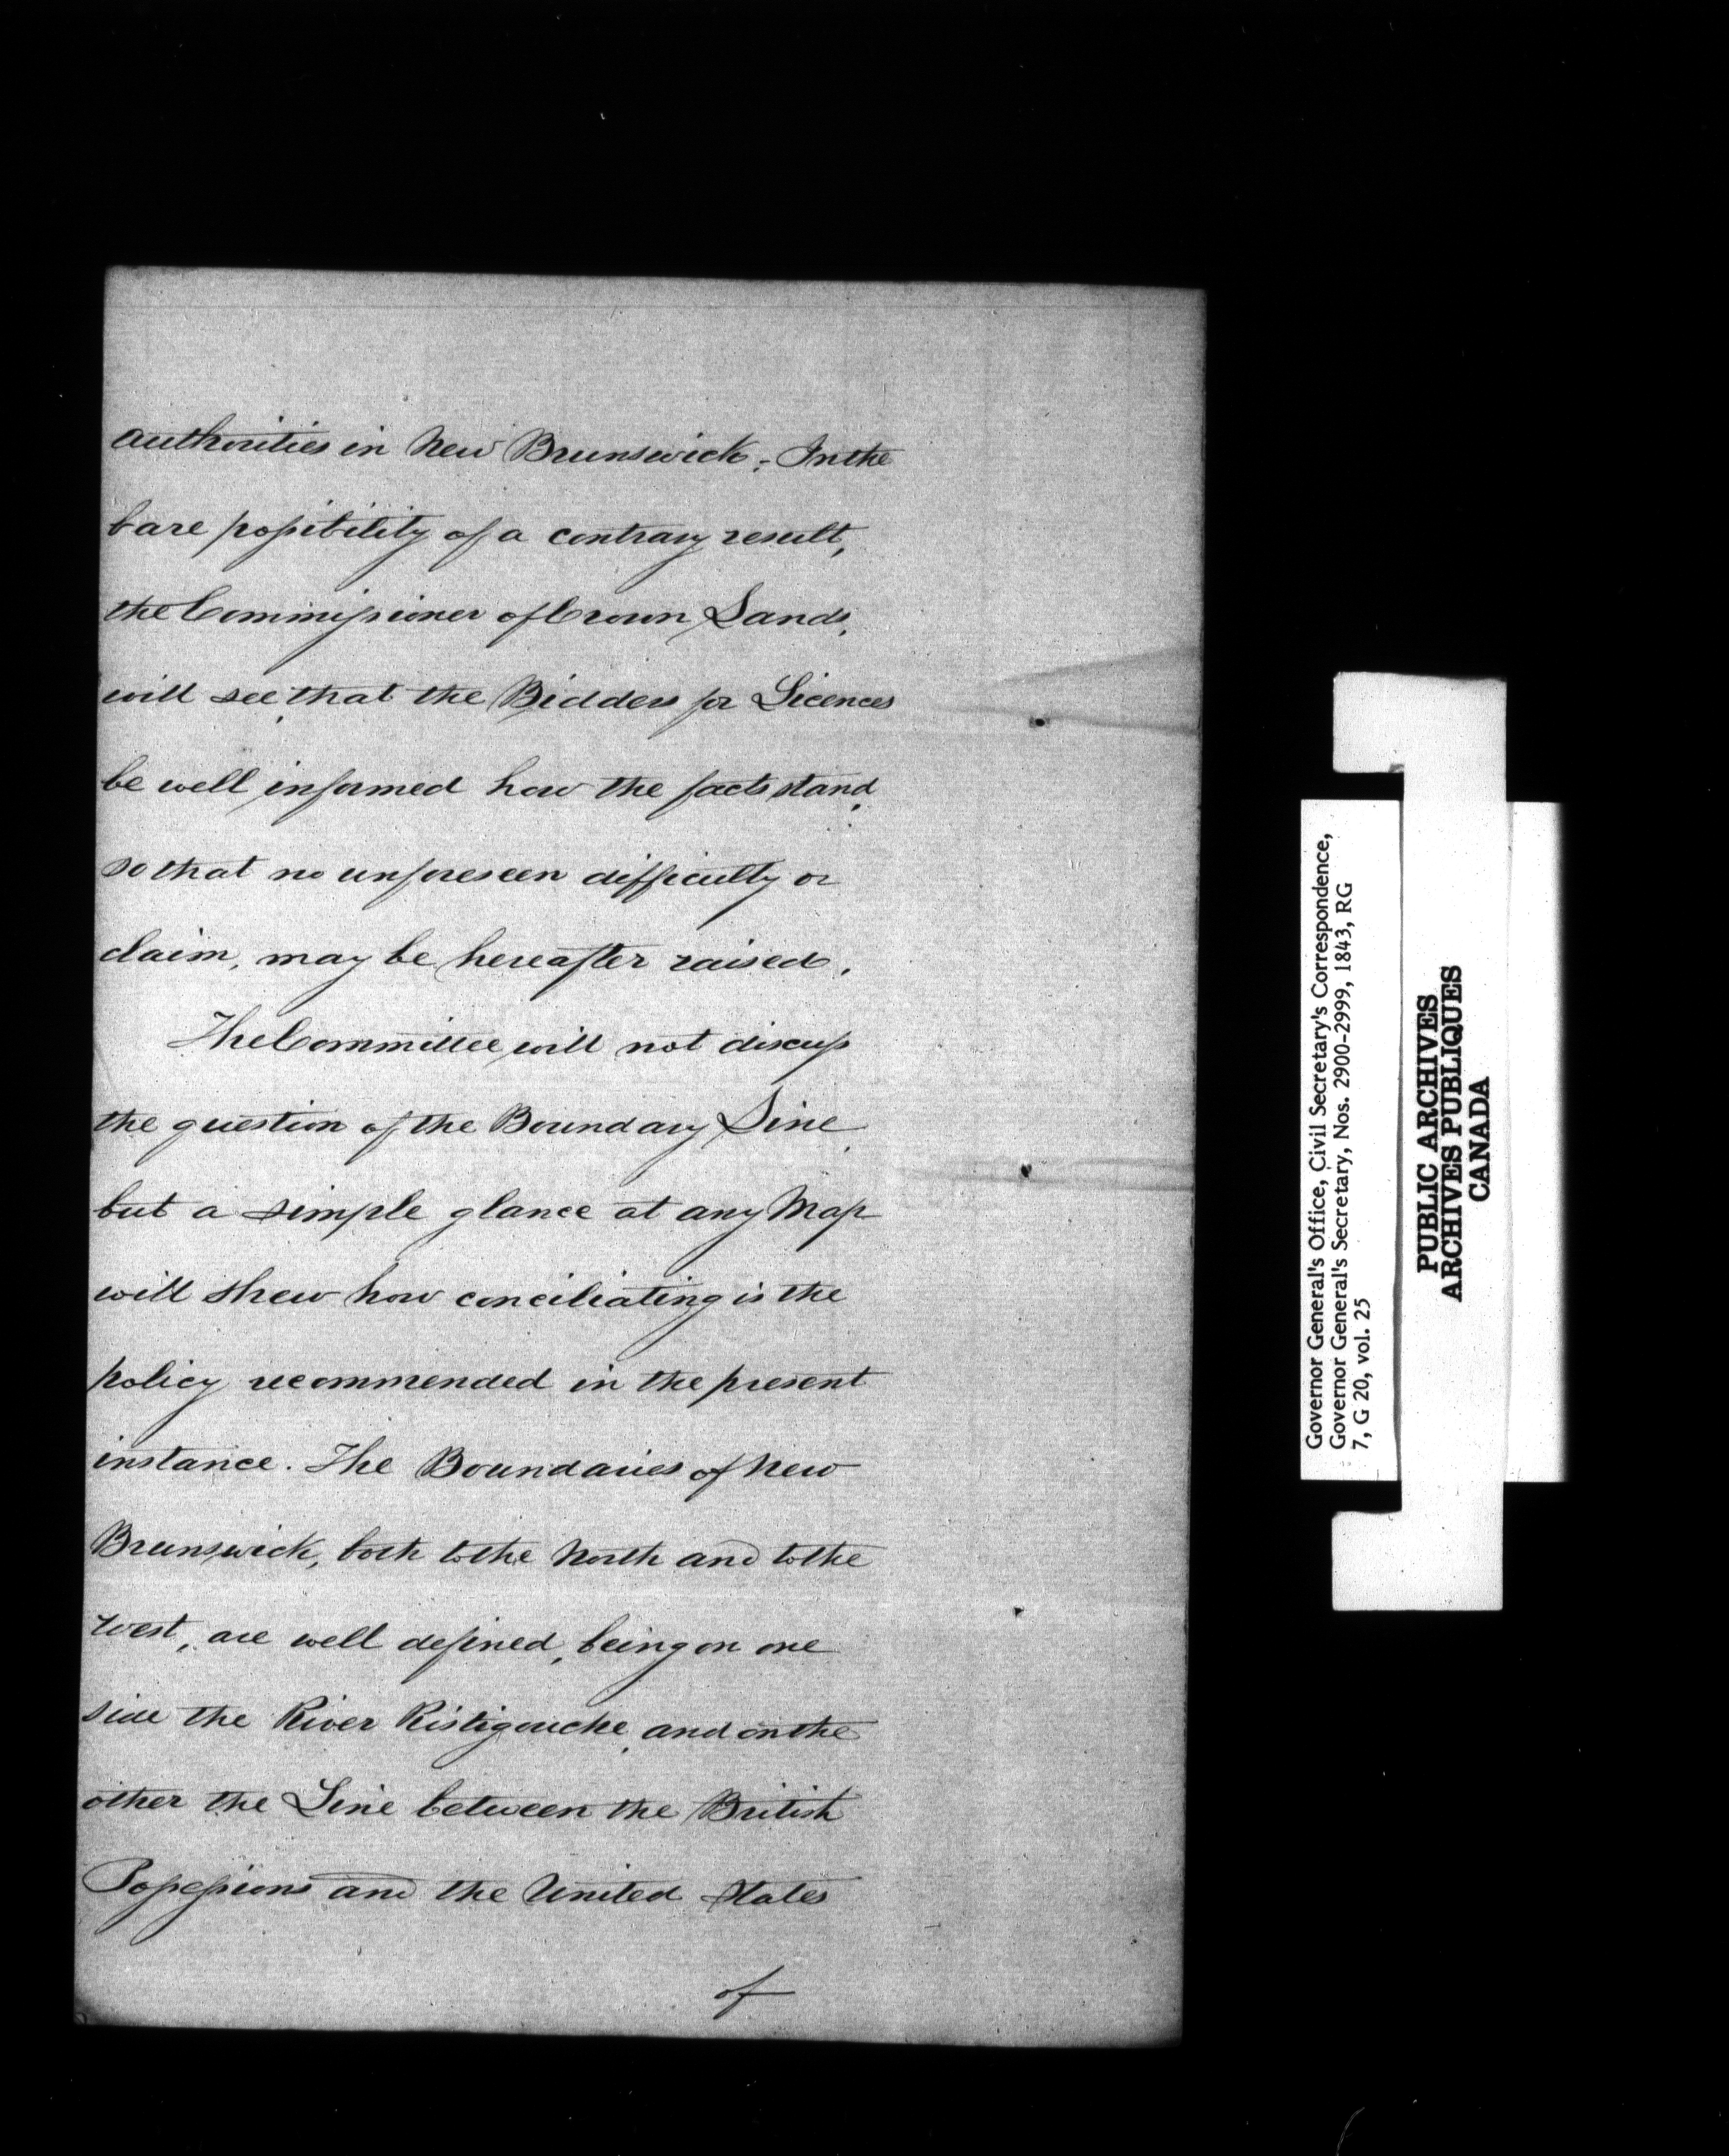 authorities in New Brunswick. In the
bare possibility of a contrary result,
the Commissioner of Crown Lands,
will see, that the Bidders for Licences
be well informed how the facts stand,
so that no unforeseen difficulty or
claim, may be hereafter raised.
The Committee will not discuss
the question of the Boundary Line,
but a simple glance at any Map
will shew how conciliating is the
policy recommended in the present
instance. The Boundaries of New
Brunswick, both to the North and to the
West, are well defined, being on one
side the River Ristigouche, and on the
other the Line between the British
Possessions and the United States
of
Governor General's Office, Civil Secretary's Correspondence,
Governor General's Secretary, Nos. 2900-2999, 1843, RG
7, G 20, vol. 25
PUBLIC ARCHIVES
ARCHIVES PUBLIQUES
CANADA